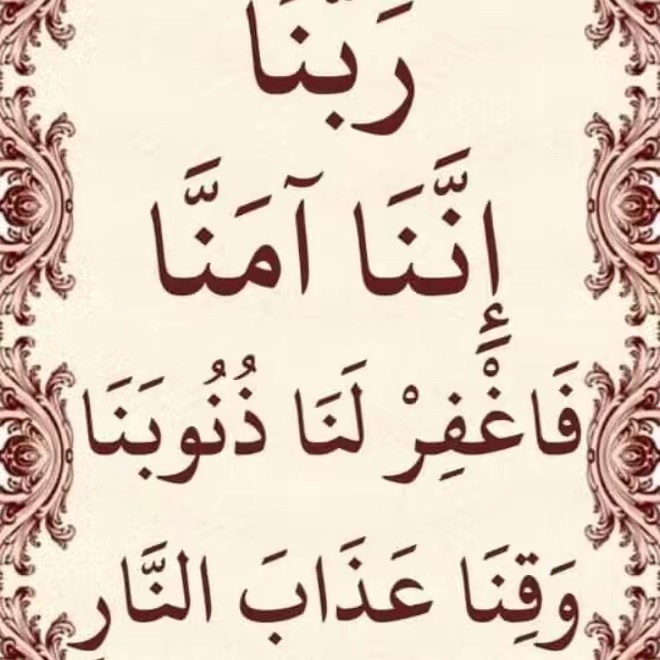 رَبَّنَا
إِنَّنَا آمَنَّا
فَاغْفِرْ لَنَا ذُنُوبَنَا
وَقِنَا عَذَابَ النَّارِ